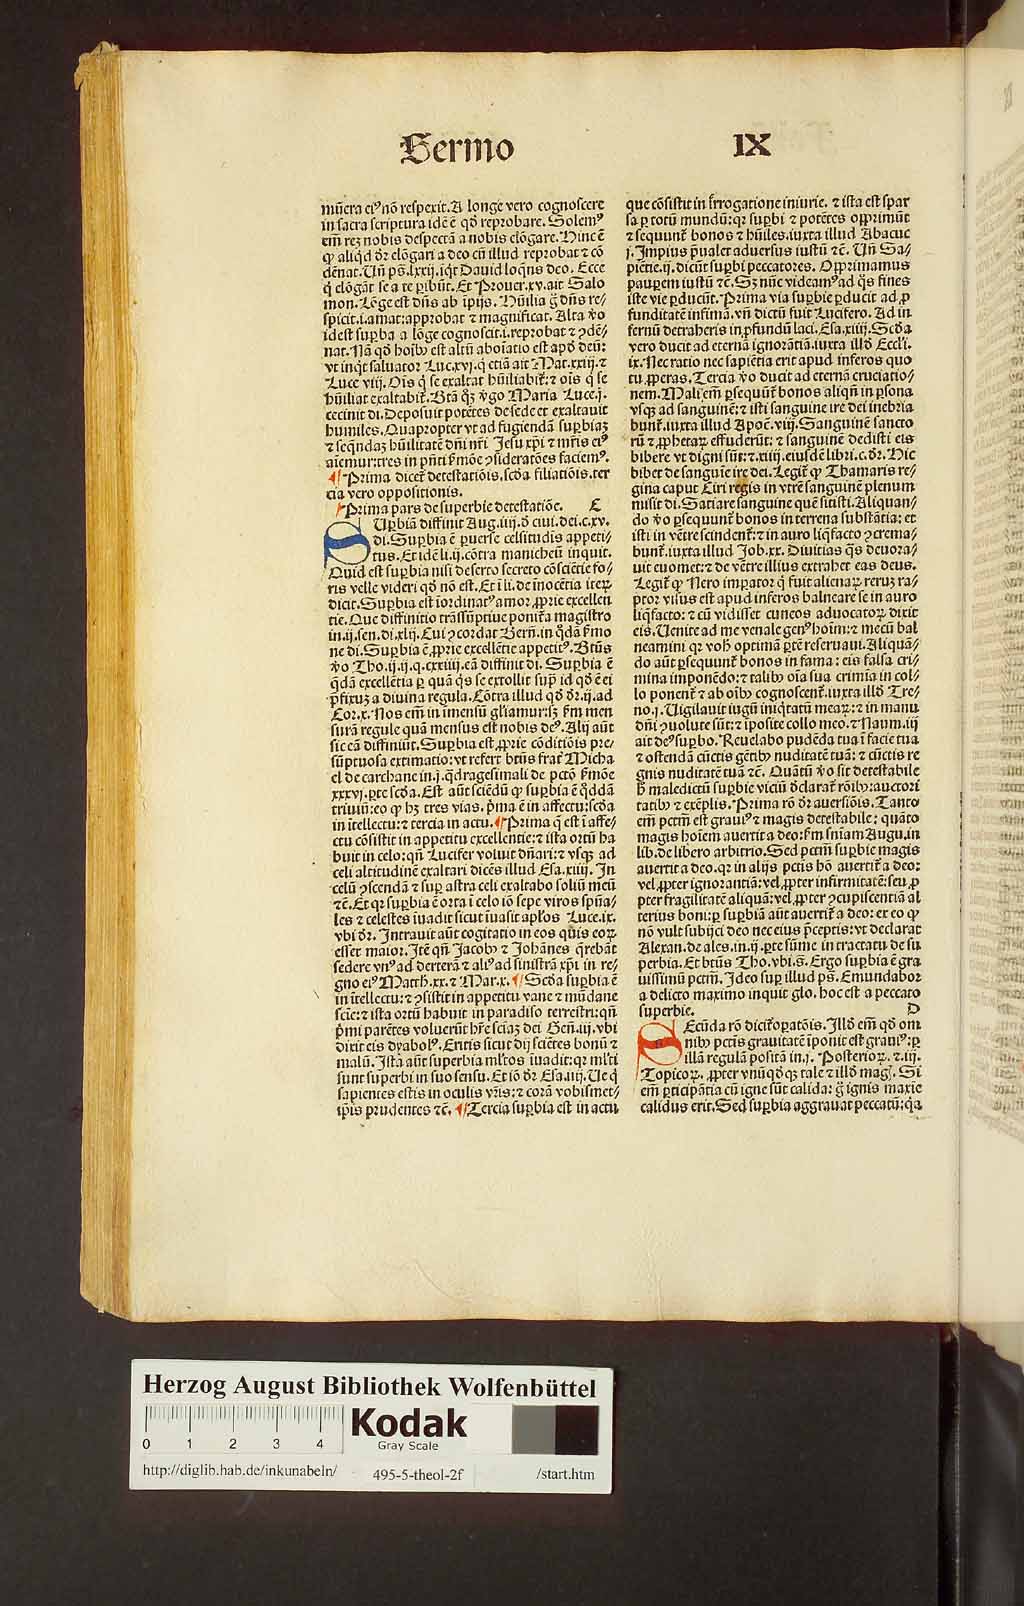 Sermo IX
mũera eiꝰ nõ respexit. A longe vero cognoscere
in sacra scriptura idẽ ẽ qđ reprobare. Solemꝰ
em̃ reꝫ nobis despectã a nobis elõgare. Hinc ẽ
ꝙ aliqđ dr̃ elõgari a deo cũ illud reprobat ⁊ cõ
dẽnat. Uñ ps̃. lxxij. iqt̃ Dauid loq̃ns deo. Ecce
q̃ elõgãt se a te ꝑibũt. Et Prouer. xv. ait Salo
mon. Lõge est dñs ab ĩpijs. Hũilia g̃ dñs re⸗
spicit .i. amat: approbat ⁊ magnificat. Alta ṽo
idest suꝑba a lõge cognoscit .i. reprobat ⁊ ꝯdẽ⸗
nat. Nã qđ hoĩbꝫ est altũ aboĩatio est apđ deũ:
vt inq̃t saluator Luc. xvj. q̃ etiã ait Mat. xxiij. ⁊
Luce viij. Oĩs q̃ se exaltat hũiliabit̃: ⁊ oĩs q̃ se
hũiliat exaltabit̃. Btã q̃ꝫ v̾go Maria Luce .j.
cecinit dĩ. Deposuit potẽtes de sede et exaltauit
humiles. Quapropter vt ad fugiendã suꝑbiaꝫ
⁊ seq̃ndaꝫ hũilitatẽ dñi nr̃i Jesu xp̃i ⁊ mr̃is eiꝰ
aĩemur: tres in pñti ẜmõe ꝯsideratões faciemꝰ.
¶ Prima dicet̃ detestatiõis. scđa filiatiõis. ter
cia vero oppositionis.
Prima pars de superbie detestatiõe. C
SUꝑbiã diffinit Aug. iiij. đ ciui. dei. c. xv.
di. Suꝑbia ẽ ꝑuerse celsitudis appeti⸗
tus. Et idẽ li. ij. cõtra manicheũ inquit.
Quid est suꝑbia nisi deserto secreto cõsciẽtie fo⸗
ris velle videri qđ nõ est. Et ĩ li. de ĩnocẽtia iteꝝ
dicit. Suꝑbia est ĩordinatꝰ amor ꝓprie excellen
tie. Que diffinitio trãssũptiue ponit̃ a magistro
in .ij. sen. di. xlij. Cui ꝯcordat Bern̄. in q̃dã ẜmo
ne di. Suꝑbia ẽ ꝓprie excellẽtie appetitꝰ. Btũs
ṽo Tho. ij. ij. q. cxxiiij. eã diffinit di. Suꝑbia ẽ
q̃dã excellẽtia ꝑ quã q̃s se extollit suꝑ id qđ ẽ ei
p̃fixuꝫ a diuina regula. Cõtra illud qđ dr̃ .ij. ad
Cor. x. Nos em̃ in ĩmẽsũ gl̃iamur: sꝫ ẜm men
surã regule quã mensus est nobis deꝰ. Alij aũt
sic eã diffiniũt. Suꝑbia est ꝓprie cõditiõis pre⸗
sũptuosa extimatio: vt refert btũs frat̃ Micha
el de carchane in .j. q̃dragesimali de pctõ ẜmõe
xxxvj. ꝑte scđa. Est aũt sciẽdũ ꝙ suꝑbia ẽ q̃ddã
triuiũ: eo ꝙ hꝫ tres vias. p̃ma ẽ in affectu: scđa
in ĩtellectu: ⁊ tercia in actu. ¶ Prima q̃ est ĩ affe⸗
ctu cõsistit in appetitu excellẽtie: ⁊ ista ortũ ha
buit in celo: qñ Lucifer voluit dñari: ⁊ vsqꝫ ad
celi altitudinẽ exaltari dicẽs illud Esa. xiiij. In
celũ ꝯscendã ⁊ suꝑ astra celi exaltabo soliũ meũ
⁊c̃. Et qꝛ suꝑbia ẽ orta ĩ celo iõ sepe viros spũa⸗
les ⁊ celestes ĩuadit sicut ĩuasit apl̃os Luce. ix.
vbi dr̃. Intrauit aũt cogitatio in eos quis eoꝝ
esset maior. Itẽ qñ Jacobꝰ ⁊ Johãnes q̃rebãt
sedere vnꝰ ad derterã ⁊ aliꝰ ad sinistrã xp̃i in re⸗
gno eiꝰ Matth. xx. ⁊ Mar. x. ¶ Scđa suꝑbia ẽ
in ĩtellectu: ⁊ ꝯsistit in appetitu vane ⁊ mũdane
scie: ⁊ ista ortũ habuit in paradiso terrestri: qñ
p̃mi parẽtes voluerũt hr̃e sciaꝫ dei Geñ. iij. vbi
dixit eis dyabolꝰ. Eritis sicut dij sciẽtes bonũ ⁊
malũ. Ista aũt superbia ml̃tos ĩuadit: qꝛ ml̃ti
sunt superbi in suo sensu. Et iõ dr̃ Esa. iij. Ue q̃
sapientes estis in oculis vr̃is: ⁊ corã vobismet⸗
ip̃is prudentes ⁊c̃. ¶ Tercia suꝑbia est in actu
que cõsistit in ĩrrogatione iniurie. ⁊ ista est spar
sa ꝑ totũ mundũ: qꝛ suꝑbi ⁊ potẽtes opprimũt
⁊ ꝑsequunt̃ bonos ⁊ hũiles. iuxta illud Abacuc
j. Impius p̃ualet aduersus iustũ ⁊c̃. Uñ Sa⸗
piẽtie. ij. dicũt suꝑbi peccatores. Opprimamus
pauꝑem iustũ ⁊c̃. Sꝫ nũc videamꝰ ad q̃s fines
iste vie ꝑducũt. Prima via suꝑbie ꝑducit ad ꝓ
funditatẽ infimã. vñ dictũ fuit Lucifero. Ad in
fernũ detraheris in ꝓfundũ laci. Esa. xiiij. Scđa
vero ducit ad eternã ignorãtiã. iuxta illđ Eccl̃i.
ix. Nec ratio nec sapiẽtia erit apud inferos quo
tu ꝓperas. Tercia ṽo ducit ad eternã cruciatio⸗
nem. Mali em̃ ꝑsequũt̃ bonos aliqñ in ꝑsona
vsqꝫ ad sanguinẽ: ⁊ isti sanguine ire dei inebria
bunt̃. iuxta illud Apoc̃. viij. Sanguinẽ sancto
rũ ⁊ ꝓphetaꝝ effuderũt: ⁊ sanguinẽ dedisti eis
bibere vt digni sũt: ⁊. xiiij. eiusdẽ libri. c. dr̃. Hic
bibet de sanguĩe ire dei. Legit̃ ꝙ Thamaris re⸗
gina caput Ciri regis in vtrẽ sanguinẽ plenum
misit di. Satiare sanguine quẽ sitisti. Aliquan⸗
do ṽo ꝑsequunt̃ bonos in terrena substãtia: et
isti in vẽtre scindent̃: ⁊ in auro liq̃facto ꝯcrema⸗
bunt̃. iuxta illud Job. xx. Diuitias q̃s deuora⸗
uit euomet: ⁊ de vẽtre illius extrahet eas deus.
Legit̃ ꝙ Nero impator q̃ fuit alienaꝝ reruꝫ ra⸗
ptor visus est apud inferos balneare se in auro
liq̃facto: ⁊ cũ vidisset cuneos aduocatoꝝ dixit
eis. Uenite ad me venale genꝰ hoĩm: ⁊ mecũ bal
neamini qꝛ vob̃ optimã ꝑtẽ reseruaui. Aliquã⸗
do aũt ꝑsequunt̃ bonos in fama: eis falsa cri⸗
mina imponẽdo: ⁊ talibꝰ oĩa sua crimĩa in col⸗
lo ponent̃ ⁊ ab oĩbꝰ cognoscent̃. iuxta illđ Tre⸗
no. j. Uigilauit iugũ iniq̃tatũ meaꝝ: ⁊ in manu
dñi ꝯuolute sũt: ⁊ ĩposite collo meo. ⁊ Naum. iij
ait deꝰ suꝑbo. Reuelabo pudẽda tua ĩ facie tua
⁊ ostendã cũctis gẽtibꝰ nuditatẽ tuã: ⁊ cũctis re
gnis nuditatẽ tuã ⁊c̃. Quãtũ ṽo sit detestabile
h̃ maledictũ suꝑbie viciũ đclarat̃ rõibꝰ: auctori
tatibꝰ ⁊ exẽplis. Prima rõ dr̃ auersiõis. Tanto
em̃ pctm̃ est grauiꝰ ⁊ magis detestabile: quãto
magis hoĩem auertit a deo: ẜm sniam Augu. in
lib. de libero arbitrio. Sed pctm̃ suꝑbie magis
auertit a deo. qꝛ in alijs pctis hõ auertit̃ a deo:
vel ꝓpter ignorantiã: vel ꝓpter infirmitatẽ: seu ꝓ
pter fragilitatẽ aliquã: vel ꝓpter ꝯcupiscentiã al
terius boni: ꝑ suꝑbiã aũt auertit̃ a deo: ex eo ꝙ
nõ vult subijci deo nec eius p̃ceptis: vt declarat
Alexan. de ales. in .ij. ꝑte sũme in tractatu de su
perbia. Et btũs Tho. vbi. s̃. Ergo suꝑbia ẽ gra
uissimũ pctm̃. Ideo suꝑ illud ps̃. Emundabor
a delicto maximo inquit glo. hoc est a peccato
superbie. D
SEcũda rõ dicit̃ oꝑatõis. Illđ em̃ qđ om
nibꝰ pctis grauitatẽ ĩponit est grauiꝰ: ꝑ
illã regulã positã in .j. Posterioꝝ. ⁊ .iij.
Topicoꝝ. ꝓpter vnũqđqꝫ tale ⁊ illđ magꝭ. Si
em̃ ꝑticipãtia cũ igne sũt calida: g̃ ignis maxie
calidus erit. Sed suꝑbia aggrauat peccatũ: q̃a
Herzog August Bibliothek Wolfenbüttel
Kodak
Gray Scale
0 1 2 3 4
http://diglib.hab.de/inkunabeln/ 495-5-theol-2f /start.htm